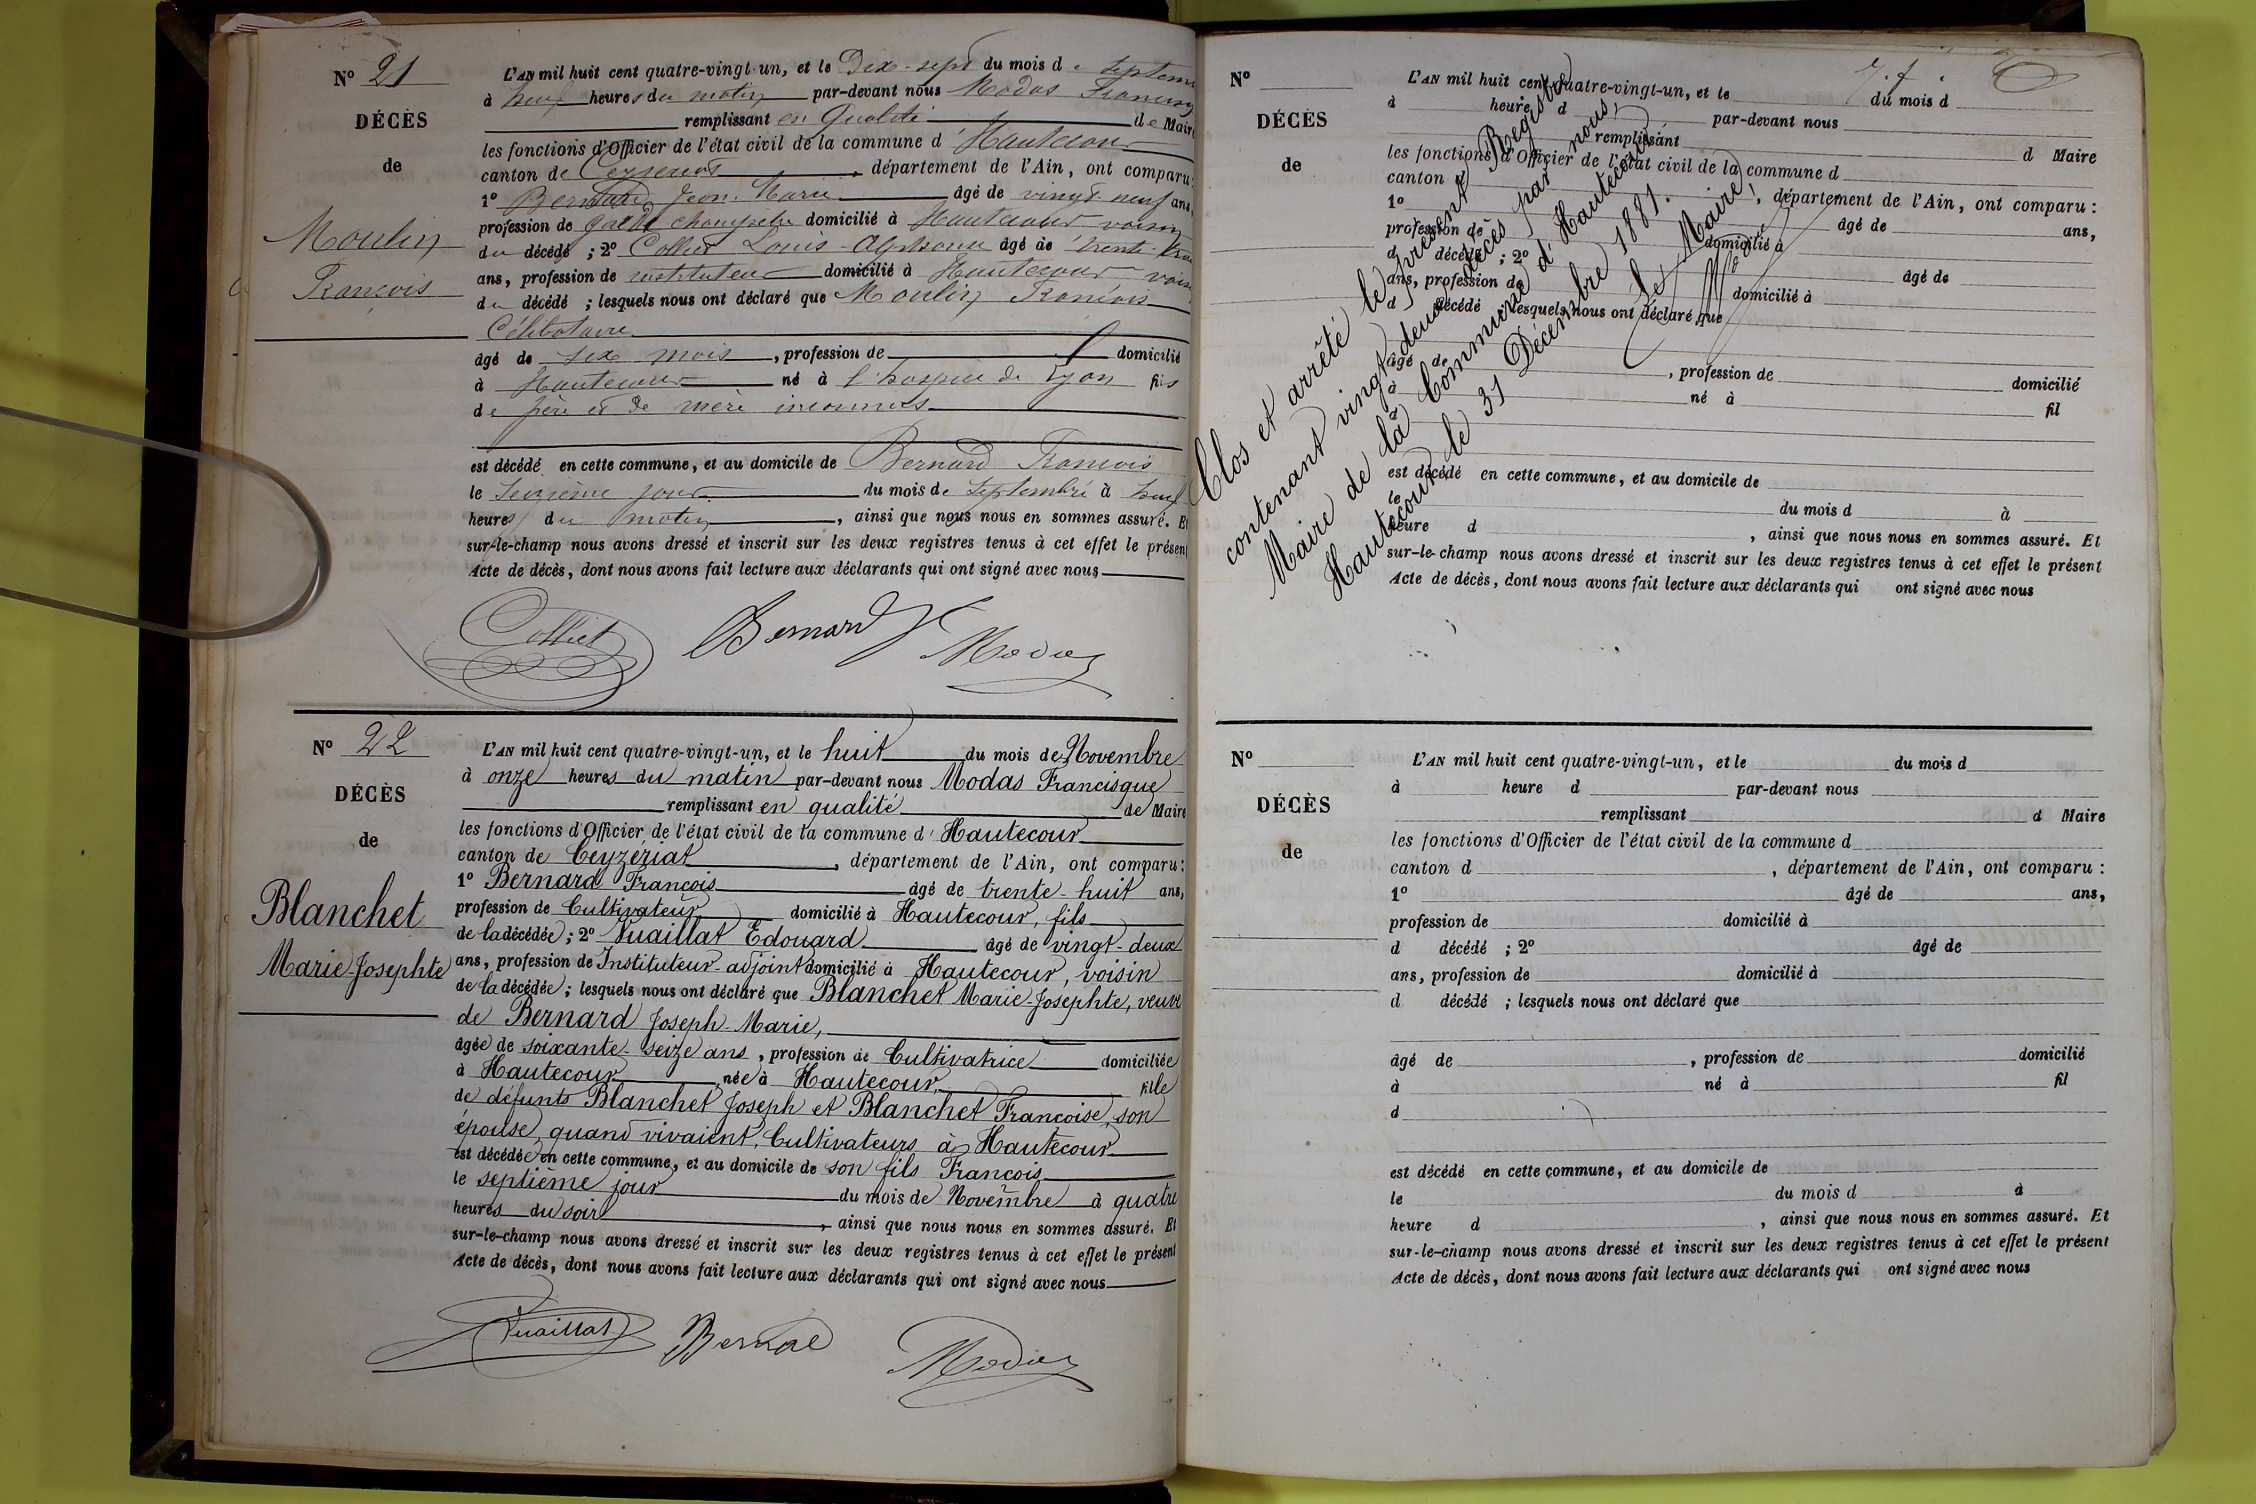 N° 21
DÉCÈS
de
Moulin
François
L'AN mil huit cent quatre-vingt-un, et le Dix-sept du mois de septem
à heures du matin par-devant nous Modas
remplissant en qualité de Maire
les fonctions d'Officier de l'état civil de la commune d'Hautecour
canton de , département de l'Ain, ont comparu :
1° Bernard Jean-Marie âgé de vingt-neuf ans,
profession de garde champêtre domicilié à Hautecour voisin
du décédé ; 2° Colliet Louis-Alphonse âgé de trente
ans, profession de instituteur domicilié à Hautecour voisin
du décédé ; lesquels nous ont déclaré que Moulin François
Célibataire
âgé de six mois, profession de domicilié
à Hautecour né à l'hospice de Lyon fils
de père et de mère inconnus
est décédé en cette commune, et au domicile de Bernard François
le seizième jour du mois de septembre à
heures du matin, ainsi que nous nous en sommes assuré. Et
sur-le-champ nous avons dressé et inscrit sur les deux registres tenus à cet effet le présent
Acte de décès, dont nous avons fait lecture aux déclarants qui ont signé avec nous
Colliet Bernard Modas
N° 22
DÉCÈS
de
Blanchet
Marie-Josephte
L'AN mil huit cent quatre-vingt-un, et le huit du mois de Novembre
à onze heures du matin par-devant nous Modas Francisque
remplissant en qualité de Maire
les fonctions d'Officier de l'état civil de la commune d'Hautecour
canton de Ceyzériat, département de l'Ain, ont comparu :
1° Bernard François âgé de trente-huit ans,
profession de Cultivateur domicilié à Hautecour, fils
de la décédée ; 2° Vuaillat Edouard âgé de vingt-deux
ans, profession de Instituteur-adjoint domicilié à Hautecour, voisin
de la décédée ; lesquels nous ont déclaré que Blanchet Marie-Josephte, veuve
de Bernard Joseph-Marie,
âgée de soixante-seize ans, profession de Cultivatrice domiciliée
à Hautecour, née à Hautecour, fille
de défunts Blanchet Joseph et Blanchet Françoise, son
épouse, quand vivaient, Cultivateurs à Hautecour
est décédée en cette commune, et au domicile de son fils François
le septième jour du mois de Novembre à quatre
heures du soir, ainsi que nous nous en sommes assuré. Et
sur-le-champ nous avons dressé et inscrit sur les deux registres tenus à cet effet le présent
Acte de décès, dont nous avons fait lecture aux déclarants qui ont signé avec nous
Vuaillat Bernard Modas
N°
DÉCÈS
de
L'AN mil huit cent quatre-vingt-un, et le du mois d
à heure d par-devant nous
remplissant d Maire
les fonctions d'Officier de l'état civil de la commune d
canton d , département de l'Ain, ont comparu :
1° âgé de ans,
profession de domicilié à
d décédé ; 2° âgé de
ans, profession de domicilié à
d décédé ; lesquels nous ont déclaré que
âgé de , profession de domicilié
à né à fil
d
est décédé en cette commune, et au domicile de
le du mois d à
heure d , ainsi que nous nous en sommes assuré. Et
sur-le-champ nous avons dressé et inscrit sur les deux registres tenus à cet effet le présent
Acte de décès, dont nous avons fait lecture aux déclarants qui ont signé avec nous
Clos et arrêté le présent Registre
contenant vingt deux décès par nous,
Maire de la Commune d'Hautecour.
Hautecour le 31 Décembre 1881.
Le Maire,
N°
DÉCÈS
de
L'AN mil huit cent quatre-vingt-un, et le du mois d
à heure d par-devant nous
remplissant d Maire
les fonctions d'Officier de l'état civil de la commune d
canton d , département de l'Ain, ont comparu :
1° âgé de ans,
profession de domicilié à
d décédé ; 2° âgé de
ans, profession de domicilié à
d décédé ; lesquels nous ont déclaré que
âgé de , profession de domicilié
à né à fil
d
est décédé en cette commune, et au domicile de
le du mois d à
heure d , ainsi que nous nous en sommes assuré. Et
sur-le-champ nous avons dressé et inscrit sur les deux registres tenus à cet effet le présent
Acte de décès, dont nous avons fait lecture aux déclarants qui ont signé avec nous